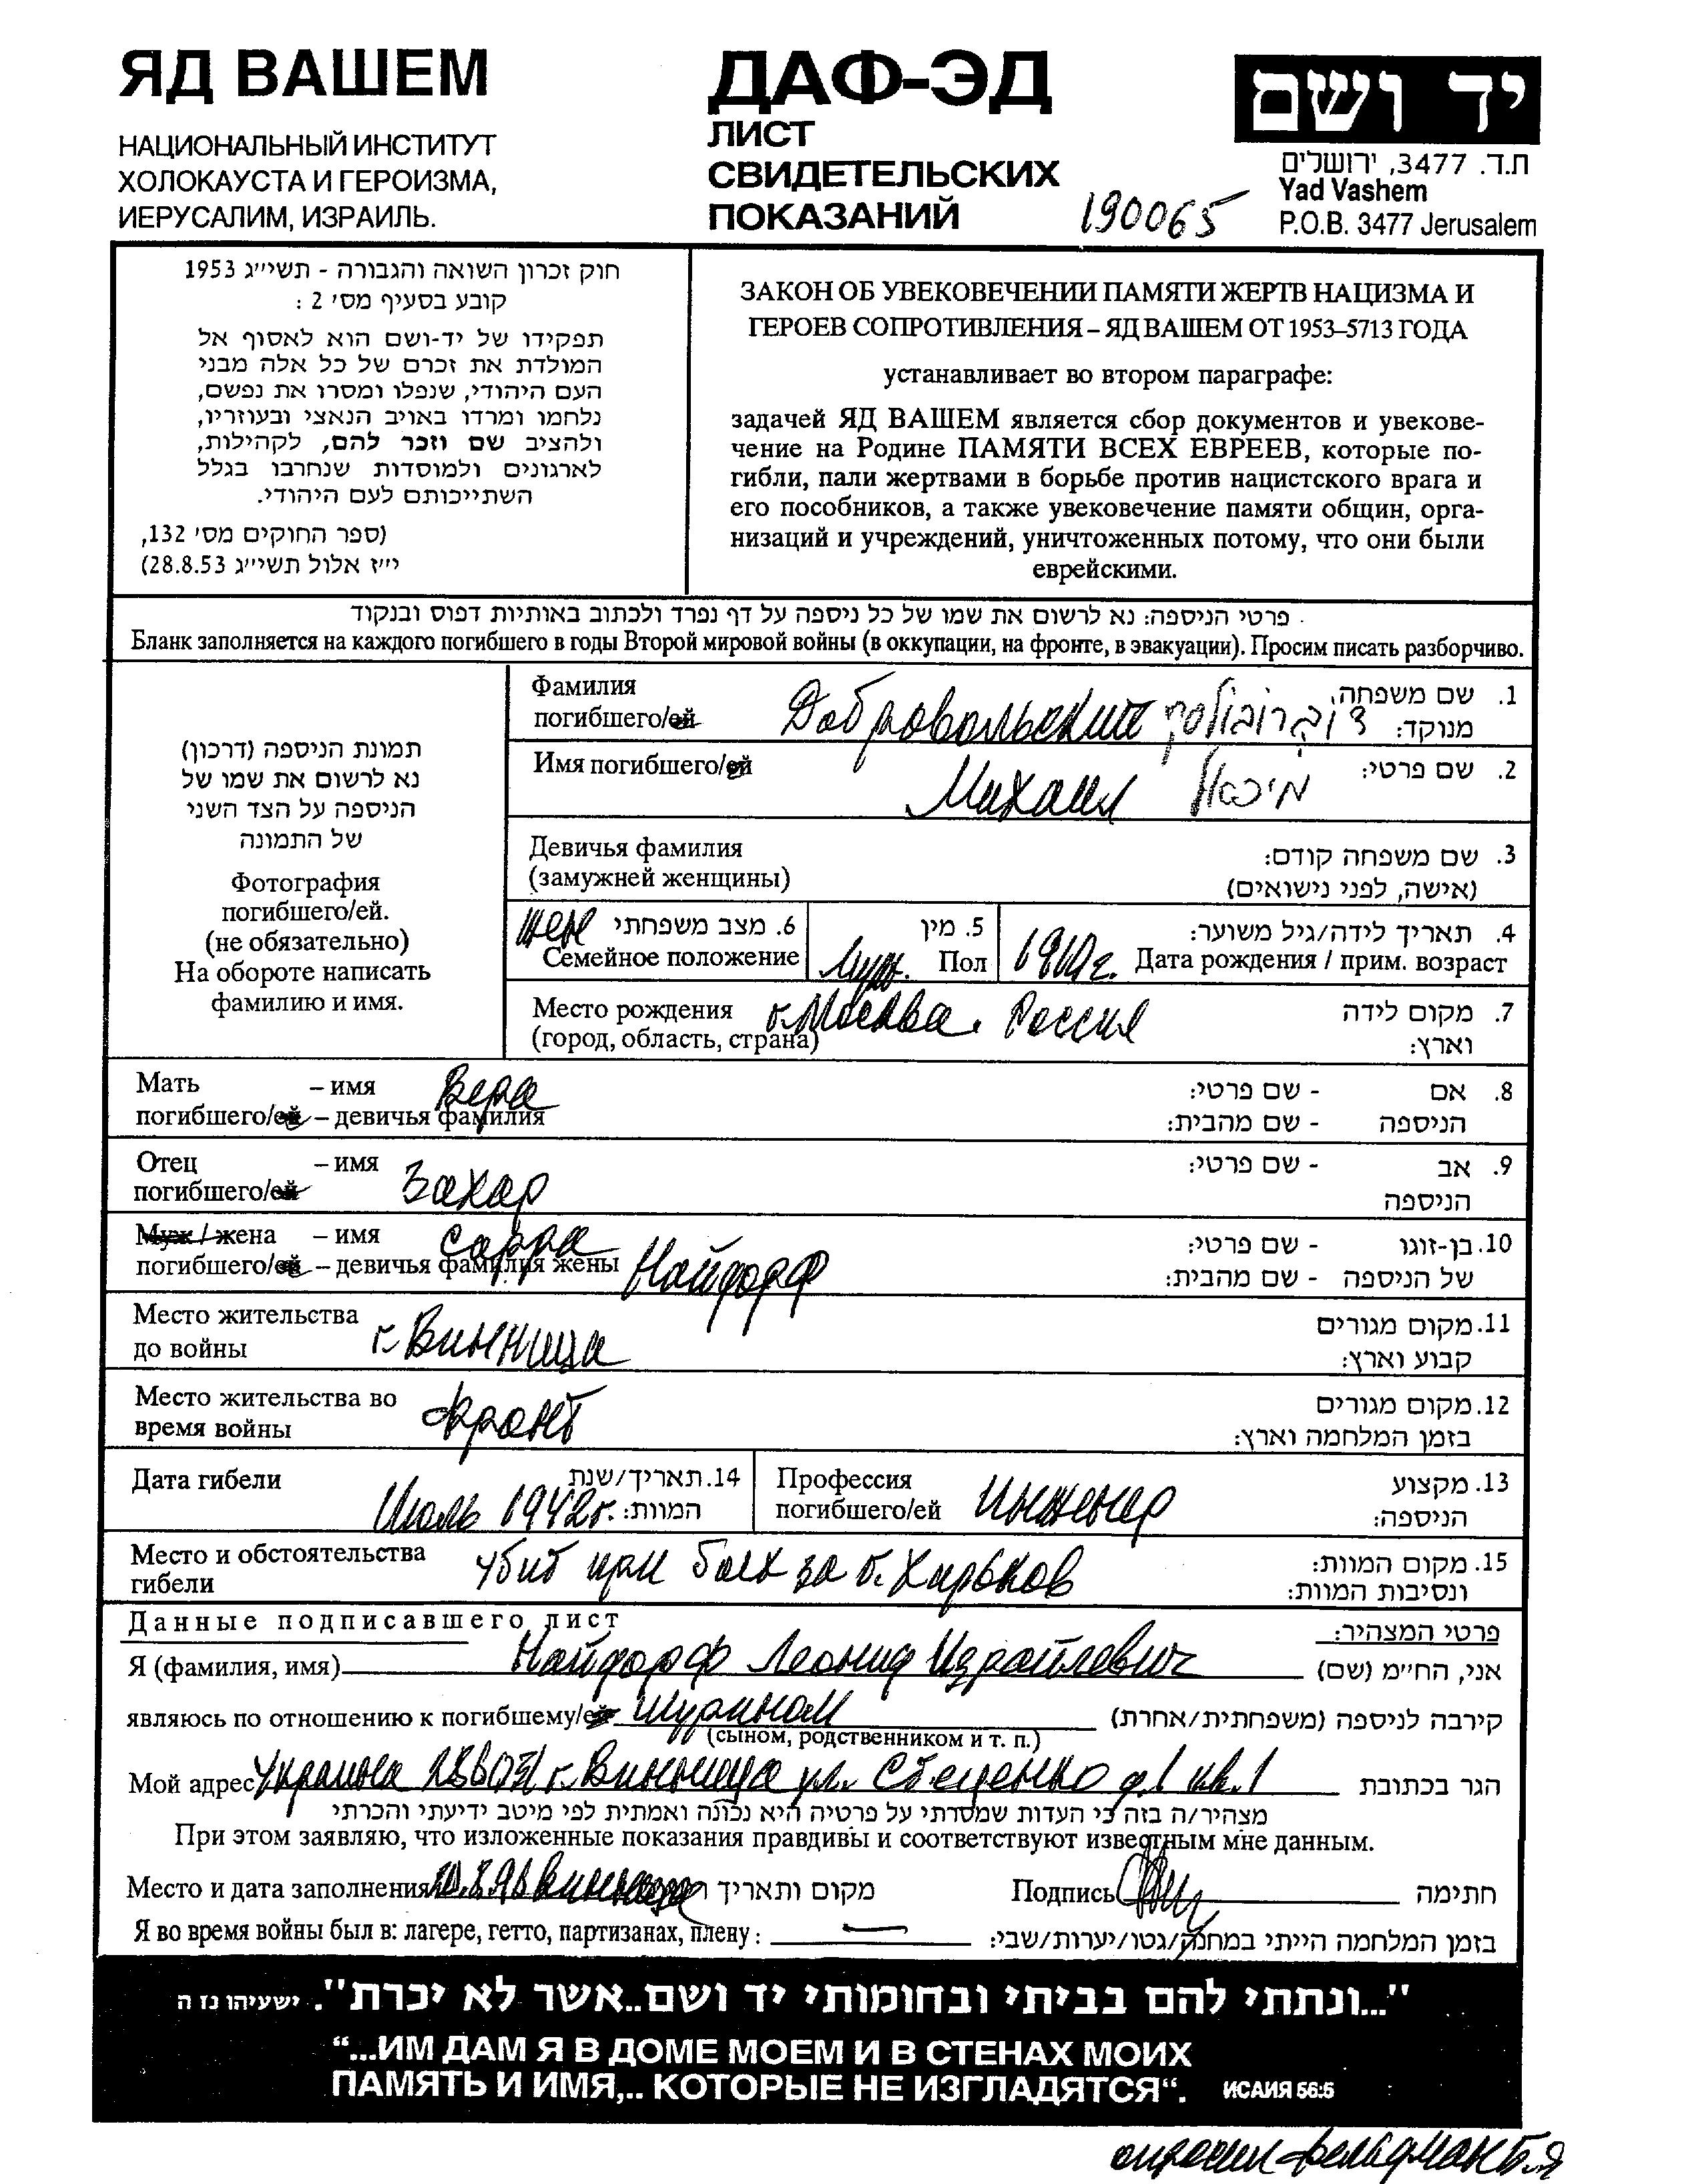 ЯД ВАШЕМ
НАЦИОНАЛЬНЫЙ ИНСТИТУТ
ХОЛОКАУСТА И ГЕРОИЗМА,
ИЕРУСАЛИМ, ИЗРАИЛЬ.
ДАФ-ЭД
ЛИСТ
СВИДЕТЕЛЬСКИХ
ПОКАЗАНИЙ
190065
יד ושם
ת.ד. 3477, ירושלים
Yad Vashem
P.O.B. 3477 Jerusalem
חוק זכרון השואה והגבורה - תשי״ג 1953
קובע בסעיף מס׳ 2 :
תפקידו של יד-ושם הוא לאסוף אל
המולדת את זכרם של כל אלה מבני
העם היהודי, שנפלו ומסרו את נפשם,
נלחמו ומרדו באויב הנאצי ובעוזריו,
ולהציב שם וזכר להם, לקהילות,
לארגונים ולמוסדות שנחרבו בגלל
השתייכותם לעם היהודי.
(ספר החוקים מס׳ 132,
י״ז אלול תשי״ג 28.8.53)
ЗАКОН ОБ УВЕКОВЕЧЕНИИ ПАМЯТИ ЖЕРТВ НАЦИЗМА И
ГЕРОЕВ СОПРОТИВЛЕНИЯ – ЯД ВАШЕМ ОТ 1953–5713 ГОДА
устанавливает во втором параграфе:
задачей ЯД ВАШЕМ является сбор документов и увекове-
чение на Родине ПАМЯТИ ВСЕХ ЕВРЕЕВ, которые по-
гибли, пали жертвами в борьбе против нацистского врага и
его пособников, а также увековечение памяти общин, орга-
низаций и учреждений, уничтоженных потому, что они были
еврейскими.
פרטי הניספה: נא לרשום את שמו של כל ניספה על דף נפרד ולכתוב באותיות דפוס ובנקוד
Бланк заполняется на каждого погибшего в годы Второй мировой войны (в оккупации, на фронте, в эвакуации). Просим писать разборчиво.
תמונת הניספה (דרכון)
נא לרשום את שמו של
הניספה על הצד השני
של התמונה
Фотография
погибшего/ей.
(не обязательно)
На обороте написать
фамилию и имя.
Фамилия 1. שם משפחה,
погибшего/ей Добровольский דוברובולסקי מנוקד:
Имя погибшего/ей Михаил מיכאל 2. שם פרטי:
Девичья фамилия 3. שם משפחה קודם:
(замужней женщины) (אישה, לפני נישואים)
жен 6. מצב משפחתי 5. מין 4. תאריך לידה/גיל משוער:
Семейное положение Муж. Пол 1910г. Дата рождения / прим. возраст
Место рождения г. Москва. Россия 7. מקום לידה
(город, область, страна) וארץ:
Мать – имя Вера 8. אם - שם פרטי:
погибшего/ей – девичья фамилия הניספה - שם מהבית:
Отец – имя Захар 9. אב - שם פרטי:
погибшего/ей הניספה
Муж / жена – имя Сарра 10. בן-זוגו - שם פרטי:
погибшего/ей – девичья фамилия жены Найдорф של הניספה - שם מהבית:
Место жительства 11. מקום מגורים
до войны г. Винница קבוע וארץ:
Место жительства во фронт 12. מקום מגורים
время войны בזמן המלחמה וארץ:
Дата гибели 14. תאריך/שנת Профессия 13. מקצוע
Июль 1942г. המוות: погибшего/ей Инженер הניספה:
Место и обстоятельства убит при боях за г. Харьков 15. מקום המוות:
гибели ונסיבות המוות:
Данные подписавшего лист פרטי המצהיר:
Я (фамилия, имя) Найдорф Леонид Израйлевич אני, הח״מ (שם)
являюсь по отношению к погибшему/ей Шурином קירבה לניספה (משפחתית/אחרת)
(сыном, родственником и т. п.)
Мой адрес Украина г. Винница ул. д.1 кв.1 הגר בכתובת
מצהיר/ה בזה כי העדות שמסרתי על פרטיה היא נכונה ואמתית לפי מיטב ידיעתי והכרתי
При этом заявляю, что изложенные показания правдивы и соответствуют известным мне данным.
Место и дата заполнения Винница מקום ותאריך Подпись חתימה
Я во время войны был в: лагере, гетто, партизанах, плену : — בזמן המלחמה הייתי במחנה/גטו/יערות/שבי:
"...ונתתי להם בביתי ובחומותי יד ושם..אשר לא יכרת". ישעיהו נז ה
“...ИМ ДАМ Я В ДОМЕ МОЕМ И В СТЕНАХ МОИХ
ПАМЯТЬ И ИМЯ,.. КОТОРЫЕ НЕ ИЗГЛАДЯТСЯ“. ИСАИЯ 56:5
опросил Фельдман Б.Я